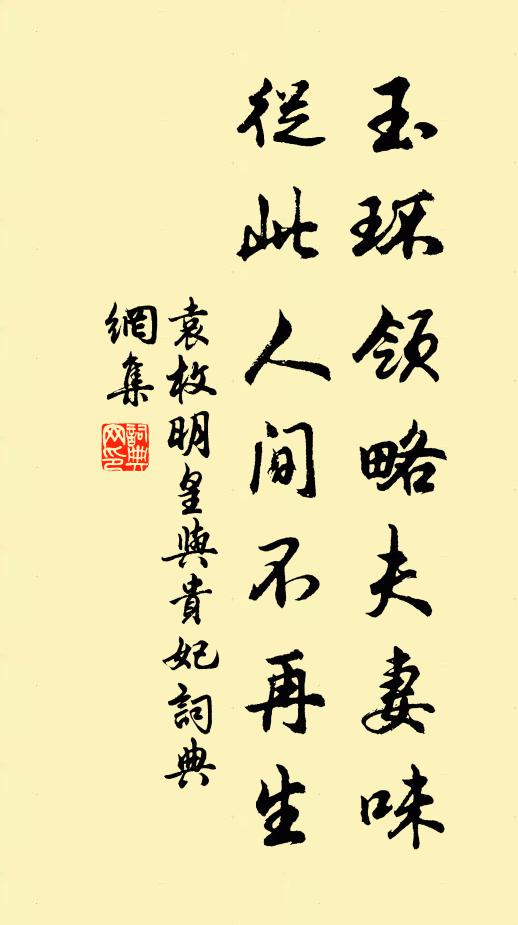 玉環領略夫妻味
從此人間不再生
袁枚明皇與貴妃詞典
網集
詞典
网印